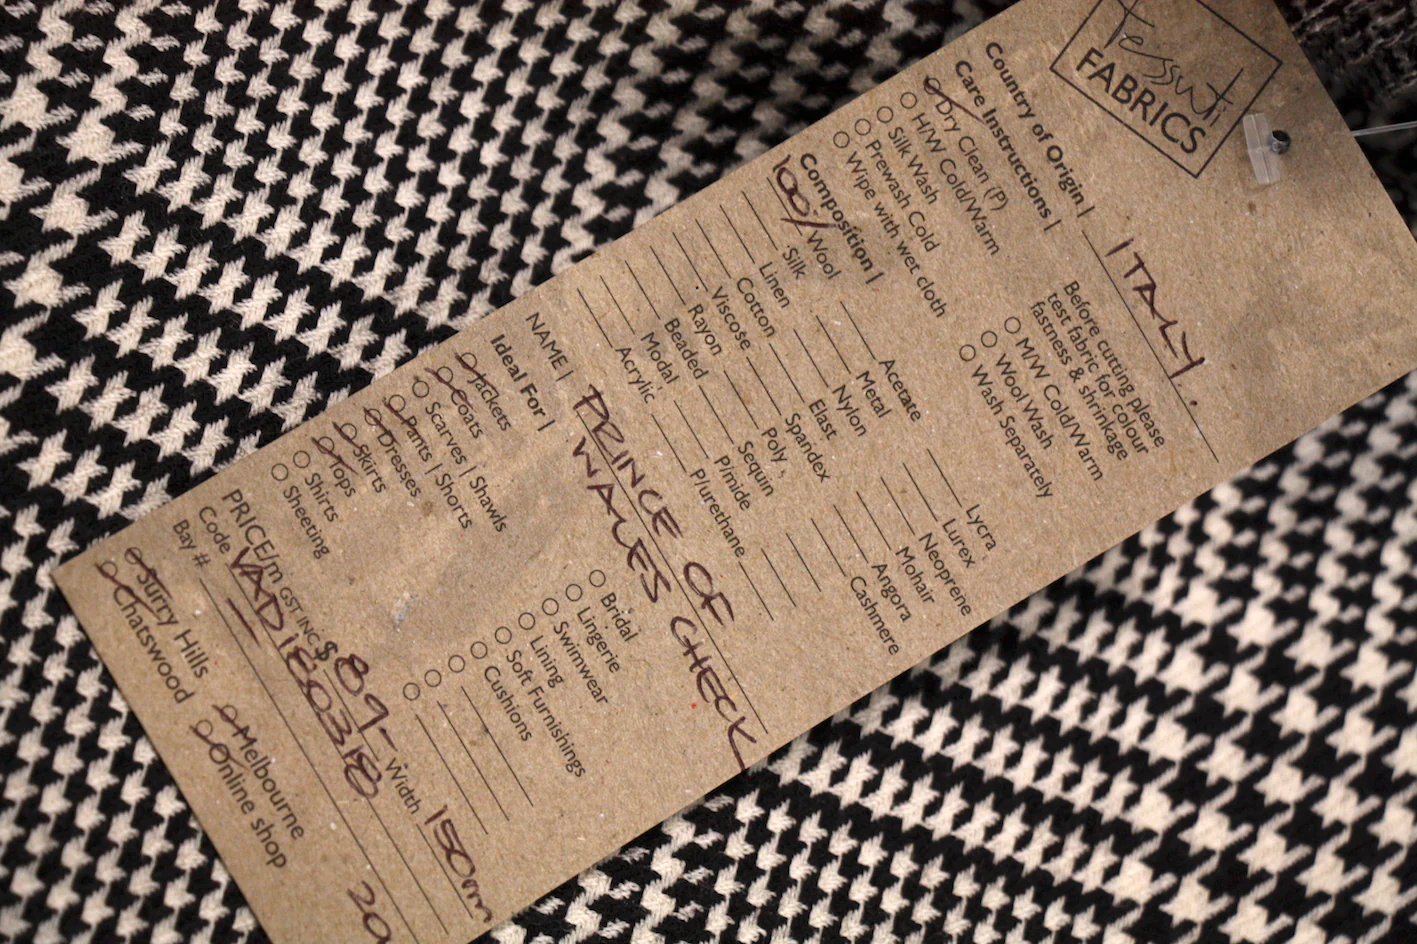 Tessuti
FABRICS
Country of Origin | ITALY.
Care Instructions |
Dry Clean (P)
H/W Cold/Warm
Silk Wash
Prewash Cold
Wipe with wet cloth
Before cutting please
test fabric for colour
fastness & shrinkage
M/W Cold/Warm
Wool Wash
Wash Separately
Composition |
100% Wool
Silk
Linen
Cotton
Viscose
Rayon
Beaded
Modal
Acrylic
Acetate
Metal
Nylon
Elast
Spandex
Poly
Sequin
P/mide
P/urethane
Lycra
Lurex
Neoprene
Mohair
Angora
Cashmere
NAME | PRINCE OF
WALES CHECK
Ideal For |
Jackets
Coats
Scarves | Shawls
Pants | Shorts
Dresses
Skirts
Tops
Shirts
Sheeting
Bridal
Lingerie
Swimwear
Lining
Soft Furnishings
Cushions
PRICE/m GST INC $ 89- Width 150m
Code VAD180318
Bay # 20
Surry Hills
Chatswood
Melbourne
Online shop